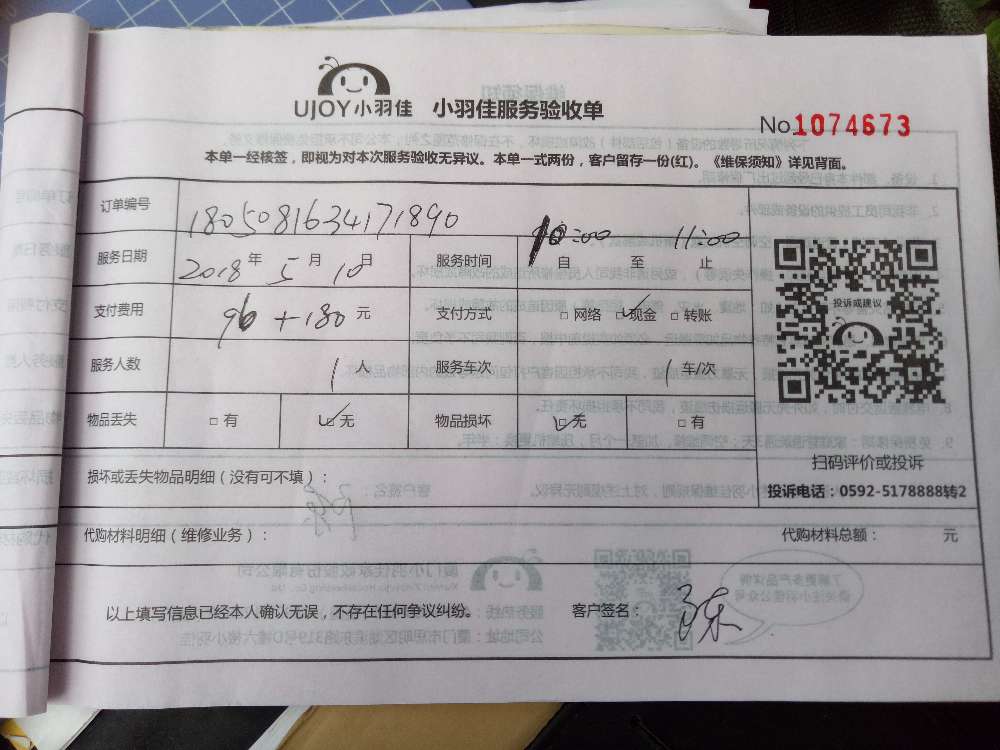 UJOY小羽佳 小羽佳服务验收单
No 1074673
本单一经核签，即视为对本次服务验收无异议。本单一式两份，客户留存一份(红)。《维保须知》详见背面。
订单编号 1805081634171890
服务日期 2018年5月10日 服务时间 10:00 自 至 11:00 止
支付费用 96+180元 支付方式 □网络 ☑现金 □转账
服务人数 1人 服务车次 1车/次
物品丢失 □有 ☑无 物品损坏 ☑无 □有
投诉或建议
扫码评价或投诉
投诉电话：0592-5178888转2
损坏或丢失物品明细（没有可不填）：
代购材料明细（维修业务）： 代购材料总额： 元
以上填写信息已经本人确认无误，不存在任何争议纠纷。 客户签名：